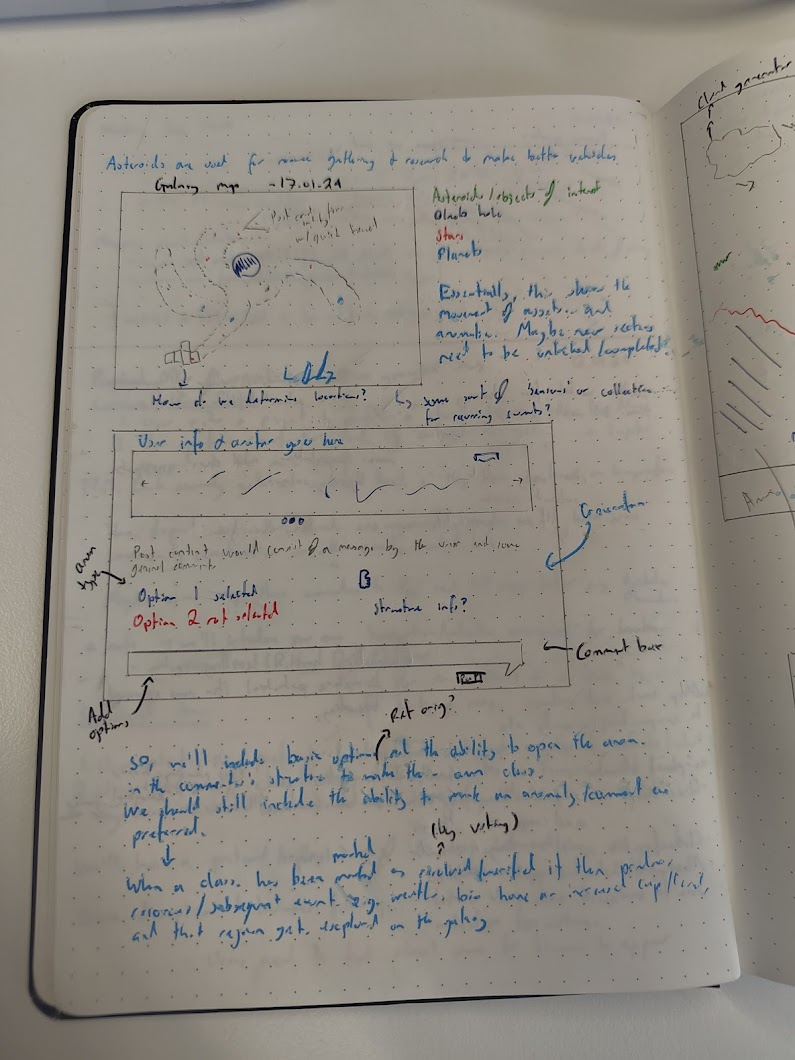 Asteroids are used for gathering & research to make better vehicles
Galaxy map -17.01.24
Post
w/ quick travel
Asteroids/objects of interest
Black hole
Stars
Planets
Essentially, this shows the
movement of assets and
anomalies. Maybe new sectors
need to be unlocked/completed.
How do we determine locations? some sort of 'seasons' or collection
for recurring events?
User info & avatar goes here
Post content would consist of a message by the user and some
general comments
anom
type
Option 1 selected
Option 2 not selected
Structure info?
Comment box
Post
Add
options
Post orig?
So, we'll include basic options and the ability to open the anom.
in the commentor's structure to make the anom class.
We should still include the ability to mark an anomaly/comment as
preferred.
(by voting)
marked
When a class. has been marked as resolved/verified if then
/subsequent event e.g. have an increased
and that region gets explored on the galaxy
Cloud generator